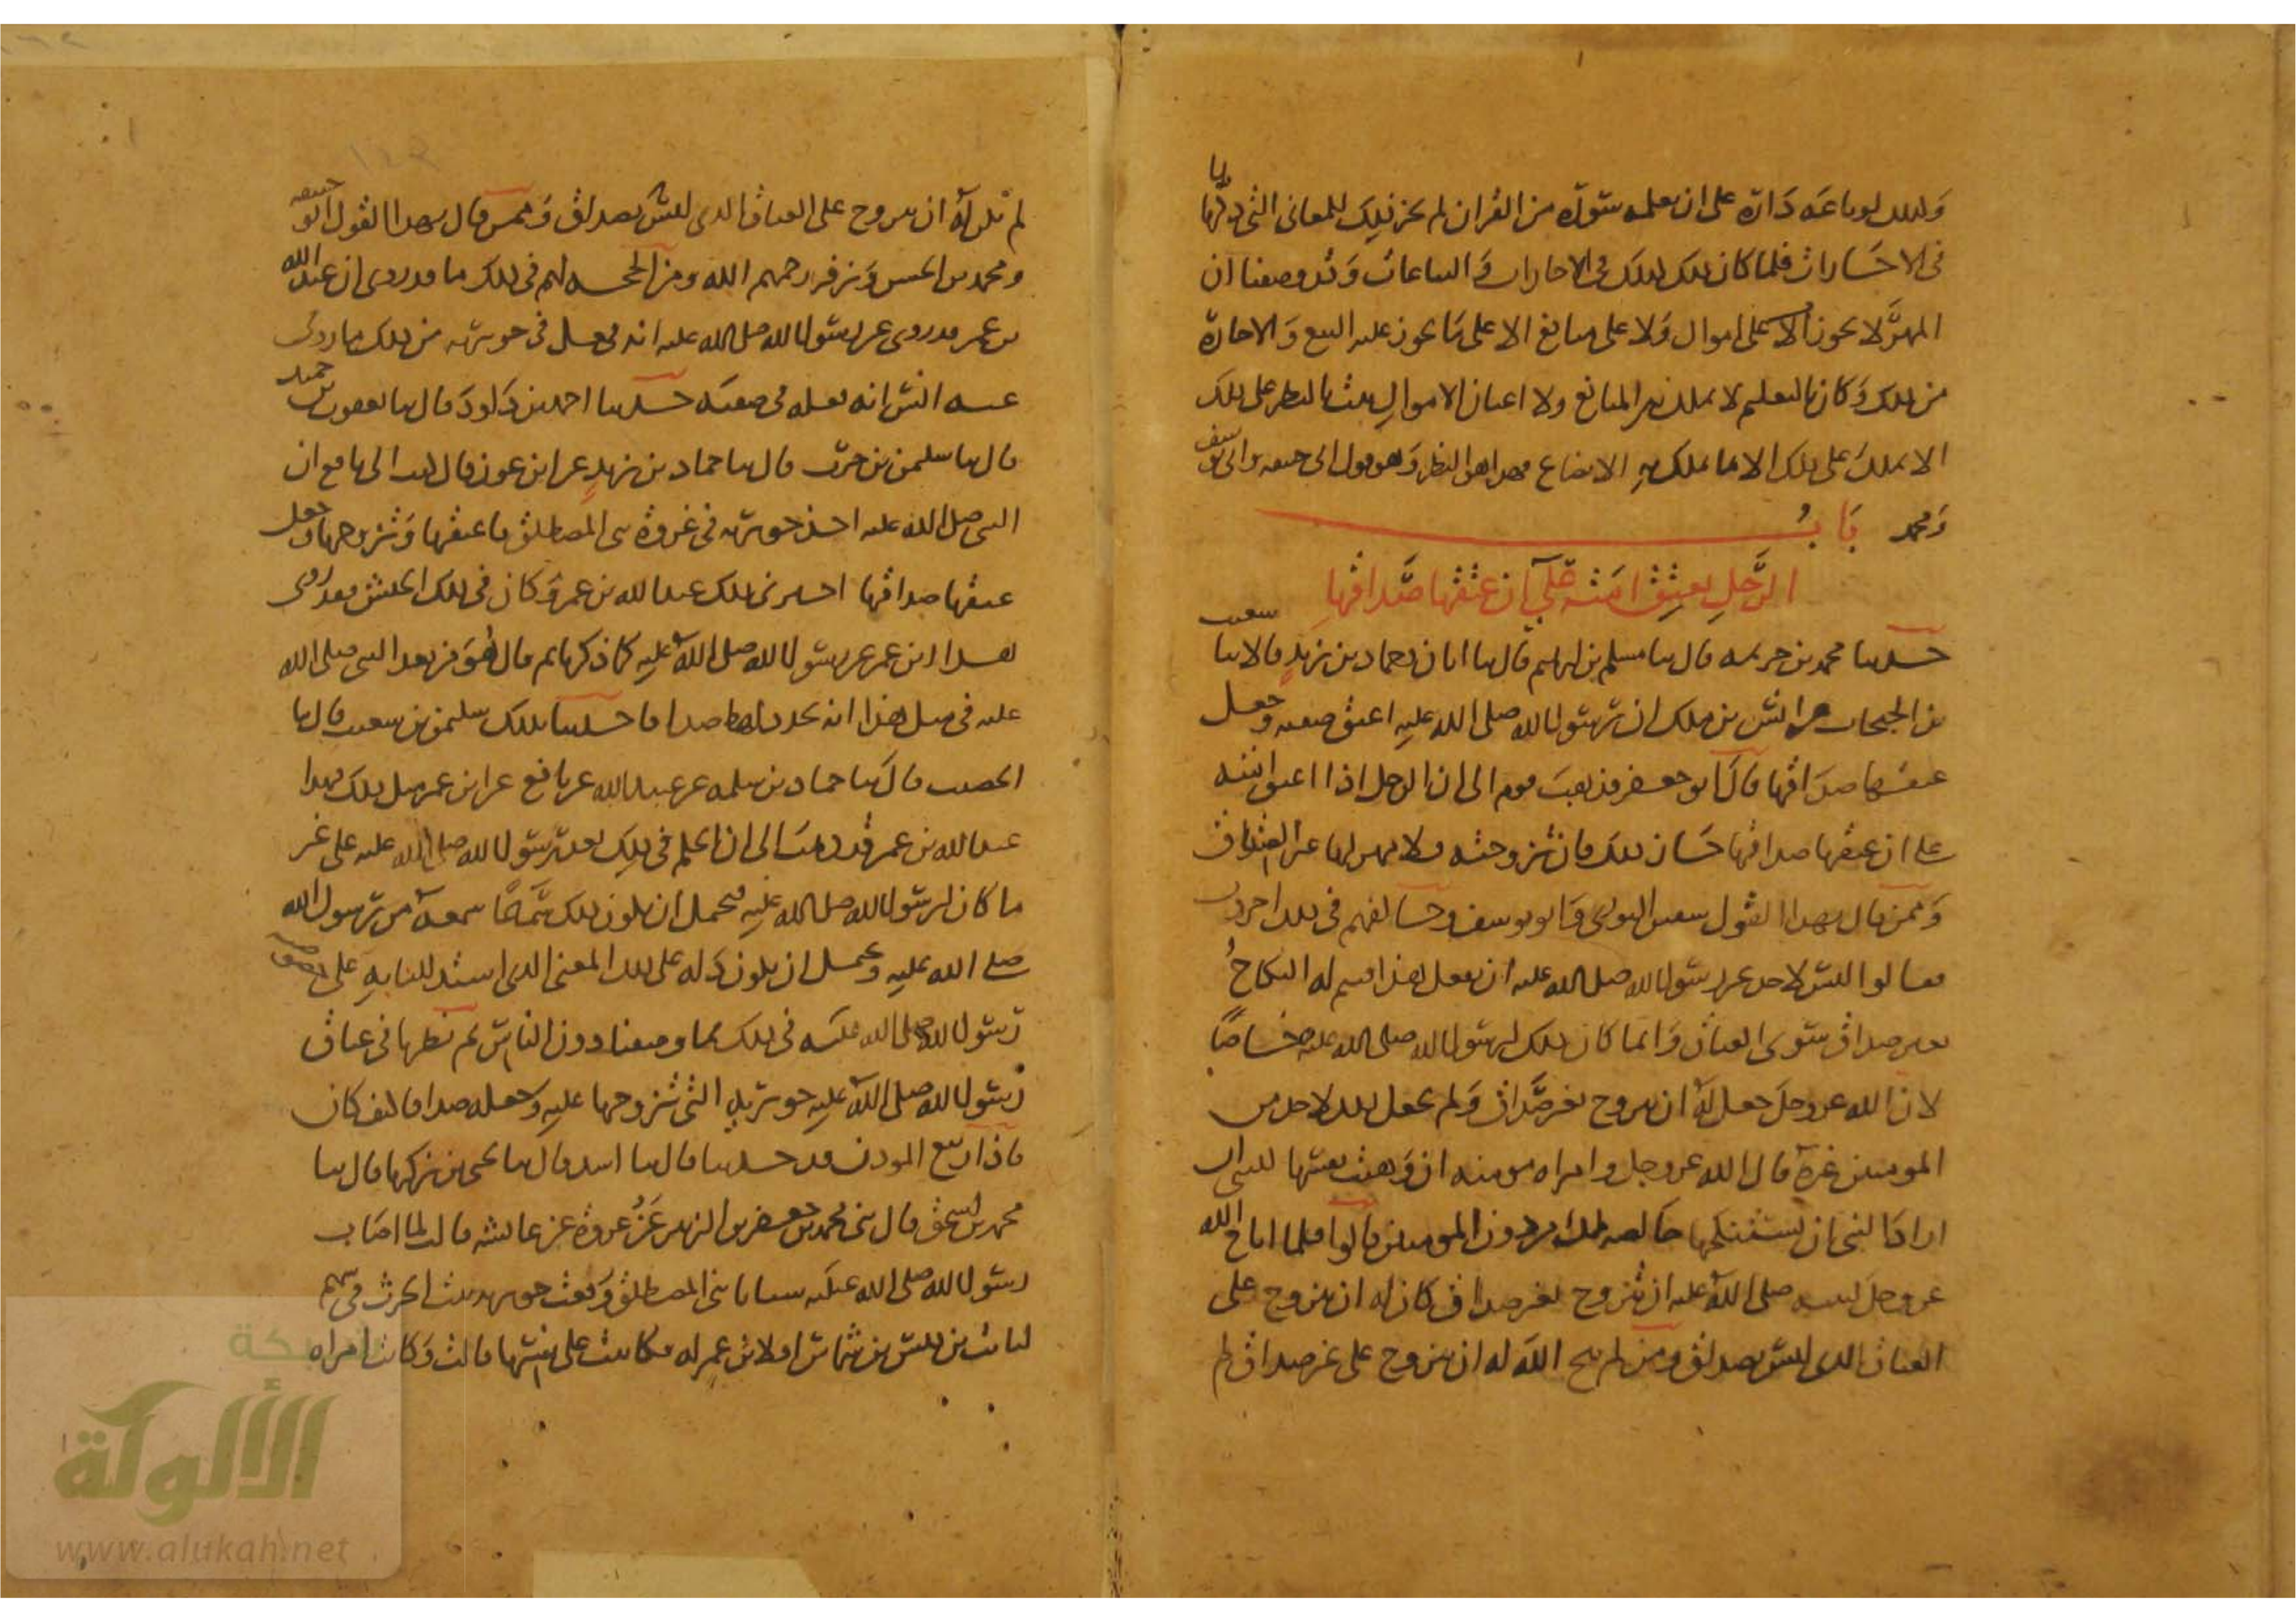 وكذلك لو باعه داره على ان يعلمه سورة من القران لم يجز ذلك للمعاني التي ذكرناها
في الاجارات فلما كان ذلك كذلك في الاجارات والبياعات وقد وصفنا ان
المهر لا يجوز الا على اموال ولا على منافع الا على ما يجوز عليه البيع والاجارة
من ذلك وكان التعليم لا يملك به المنافع ولا اعيان الاموال ثبت بالنظر على ذلك
الا يملك على ذلك الا ما يملك به الابضاع فهذا هو النظر وهو قول ابي حنيفه وابي يوسف
ومحمد باب
الرجل يعتق امته على ان عتقها صداقها
حدثنا محمد بن خزيمه قال ثنا مسلم بن ابرهيم قال ثنا ابان وحماد بن زيد قالا ثنا شعيب
بن الحبحاب عن انس بن ملك ان رسول الله صلى الله عليه اعتق صفيه وجعل
عتقها صداقها قال ابو جعفر فذهب قوم الى ان الرجل اذا اعتق امته
على ان عتقها صداقها جاز ذلك فان تزوجته فلا مهر لها غير العتاق
وممن قال بهذا القول سفين الثوري وابو يوسف وخالفهم في ذلك اخرون
فقالوا ليس لاحد غير رسول الله صلى الله عليه ان يفعل هذا فيتم له النكاح
بغير صداق سوى العتاق وانما كان ذلك لرسول الله صلى الله عليه خاصا
لان الله عز وجل جعل له ان يتزوج بغير صداق ولم يجعل ذلك لاحد من
المومنين غيره قال الله عز وجل وامراه مومنه ان وهبت نفسها للنبي ان
اراد النبي ان يستنكحها خالصه لك من دون المومنين قالوا فلما اباح الله
عز وجل لنبيه صلى الله عليه ان يتزوج بغير صداق كان له ان يتزوج على
العتاق الذي ليس بصداق ومن لم يبح الله له ان يتزوج على غير صداق لم
لم يكن له ان يتزوج على العتاق الذي ليس بصداق وممن قال بهذا القول ابو حنيفه
ومحمد بن الحسن وزفر رحمهم الله ومن الحجه لهم في ذلك ما قد روى ان عبد الله
بن عمر قد روى عن رسول الله صلى الله عليه انه فعل في جويريه من ذلك ما روى
عنه انس انه فعله في صفيه حدثنا احمد بن داود قال ثنا يعقوب بن حميد
قال ثنا سليمن بن حرب قال ثنا حماد بن زيد عن ابن عون قال كتب الى نافع ان
النبي صلى الله عليه اخذ جويريه في غزوة بني المصطلق فاعتقها وتزوجها وجعل
عتقها صداقها اخبرني بذلك عبد الله بن عمر وكان في ذلك الجيش فقد روى
هذا ابن عمر عن رسول الله صلى الله عليه كما ذكرنا ثم قال هو من بعد النبي صلى الله
عليه في مثل هذا انه يجدد لها صداقا حدثنا بذلك سليمن بن شعيب قال ثنا
الخصيب قال ثنا حماد بن سلمه عن عبيد الله عن نافع عن ابن عمر مثل ذلك فهذا
عبد الله بن عمر قد ذهب الى ان الحكم في ذلك بعد رسول الله صلى الله عليه على غير
ما كان لرسول الله صلى الله عليه فيحتمل ان يكون ذلك سماعا سمعه من رسول الله
صلى الله عليه ويحتمل ان يكون دله على ذلك المعنى الذي استدللنا به على خصوصيه
رسول الله صلى الله عليه في ذلك بما وصفنا دون الناس ثم نظرنا في عتاق
رسول الله صلى الله عليه جويريه التي تزوجها عليه وجعله صداقا كيف كان
فاذا ربيع الموذن قد حدثنا قال ثنا اسد قال ثنا يحيى بن زكريا قال ثنا
محمد بن اسحق قال ثنى محمد بن جعفر بن الزبير عن عروة عن عايشه قالت لما اصاب
رسول الله صلى الله عليه سبايا بني المصطلق وقعت جويريه بنت الحرث في سهم
لثابت بن قيس بن شماس او لابن عم له فكاتبت على نفسها قالت وكانت امراه
شبكة
الألوكة
www.alukah.net